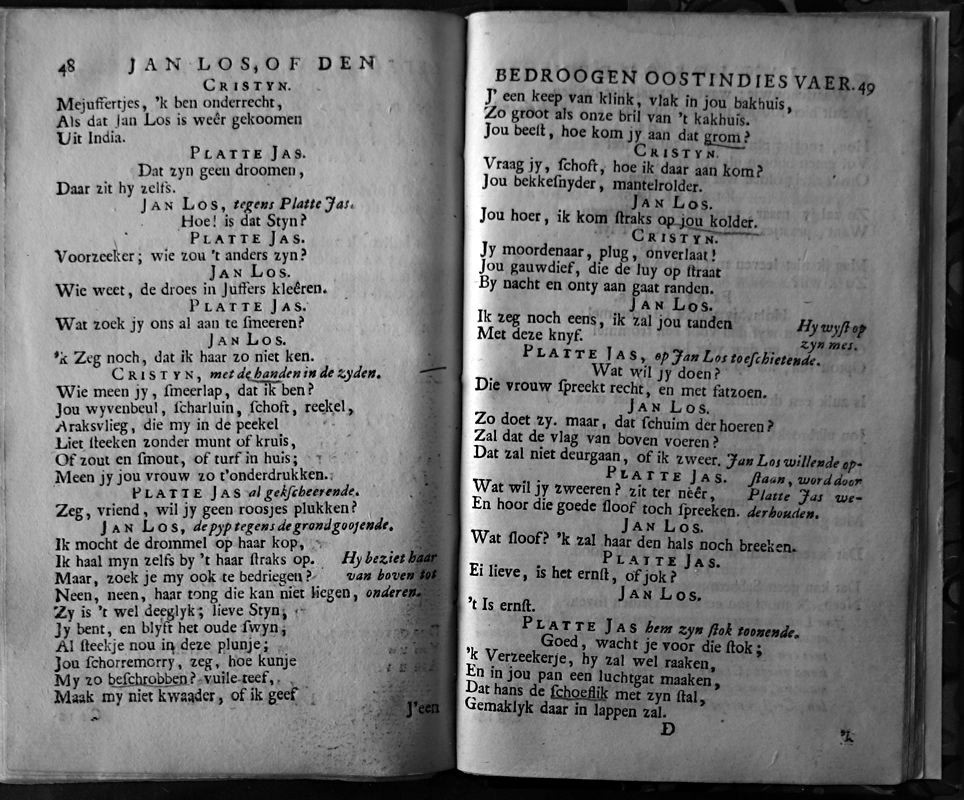 48 JAN LOS, OF DEN
CRISTYN.
Mejuffertjes, 'k ben onderrecht,
Als dat Jan Los is weêr gekoomen
Uit India.
PLATTE JAS.
Dat zyn geen droomen,
Daar zit hy zelfs.
JAN LOS, tegens Platte Jas.
Hoe! is dat Styn?
PLATTE JAS.
Voorzeeker; wie zou 't anders zyn?
JAN LOS.
Wie weet, de droes in Juffers kleêren.
PLATTE JAS.
Wat zoek jy ons al aan te ſmeeren?
JAN LOS.
'k Zeg noch, dat ik haar zo niet ken.
CRISTYN, met de handen in de zyden.
Wie meen jy, ſmeerlap, dat ik ben?
Jou wyvenbeul, ſcharluin, ſchoft, reekel,
Araksvlieg, die my in de peekel
Liet ſteeken zonder munt of kruis,
Of zout en ſmout, of turf in huis;
Meen jy jou vrouw zo t'onderdrukken.
PLATTE JAS al gekſcheerende.
Zeg, vriend, wil jy geen roosjes plukken?
JAN LOS, de pyp tegens de grond goojende.
Ik mocht de drommel op haar kop,
Ik haal myn zelfs by 't haar ſtraks op. Hy beziet haar
Maar, zoek je my ook te bedriegen? van boven tot
Neen, neen, haar tong die kan niet liegen, onderen.
Zy is 't wel deeglyk; lieve Styn,
Jy bent, en blyft het oude ſwyn,
Al ſteekje nou in deze plunje;
Jou ſchorremorry, zeg, hoe kunje
My zo beſchrobben? vuile teef,
Maak my niet kwaader, of ik geef
J'een
BEDROOGEN OOSTINDIES VAER. 49
J' een keep van klink, vlak in jou bakhuis,
Zo groot als onze bril van 't kakhuis.
Jou beeſt, hoe kom jy aan dat grom?
CRISTYN.
Vraag jy, ſchoft, hoe ik daar aan kom?
Jou bekkeſnyder, mantelrolder.
JAN LOS.
Jou hoer, ik kom ſtraks op jou kolder.
CRISTYN.
Jy moordenaar, plug, onverlaat!
Jou gauwdief, die de luy op ſtraat
By nacht en onty aan gaat randen.
JAN LOS.
Ik zeg noch eens, ik zal jou tanden Hy wyſt op
Met deze knyf. zyn mes.
PLATTE JAS, op Jan Los toeſchietende.
Wat wil jy doen?
Die vrouw ſpreekt recht, en met fatzoen.
JAN LOS.
Zo doet zy. maar, dat ſchuim der hoeren?
Zal dat de vlag van boven voeren?
Dat zal niet deurgaan, of ik zweer. Jan Los willende op-
PLATTE JAS. ſtaan, word door
Wat wil jy zweeren? zit ter neêr, Platte Jas we-
En hoor die goede ſloof toch ſpreeken. derhouden.
JAN LOS.
Wat ſloof? 'k zal haar den hals noch breeken.
PLATTE JAS.
Ei lieve, is het ernſt, of jok?
JAN LOS.
't Is ernſt.
PLATTE JAS hem zyn ſtok toonende.
Goed, wacht je voor die ſtok;
'k Verzeekerje, hy zal wel raaken,
En in jou pan een luchtgat maaken,
Dat hans de ſchoeſlik met zyn ſtal,
Gemaklyk daar in lappen zal.
D 'k